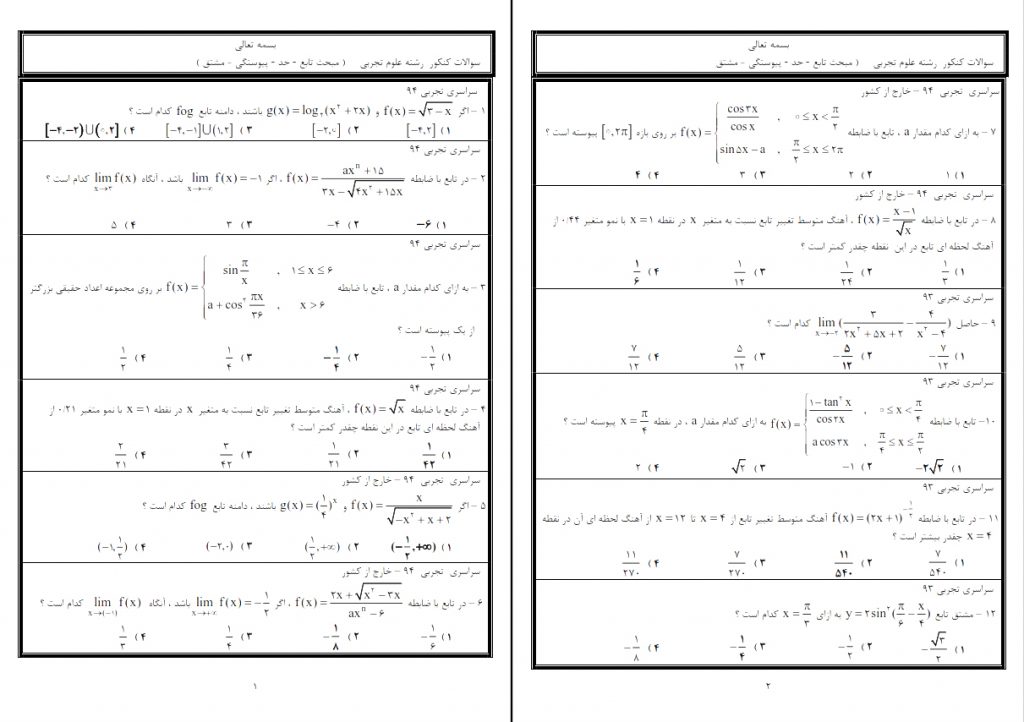 بسمه تعالی
سوالات کنکور رشته علوم تجربی ( مبحث تابع - حد - پیوستگی - مشتق )
سراسری تجربی ۹۴
۱ – اگر f(x) = √(۳ − x) و g(x) = log₂(x² + ۲x) باشند ، دامنه تابع fog کدام است ؟
۱) [−۴,۲] ۲) [−۲,۰] ۳) [−۴,−۱]∪(۱,۲] ۴) [−۴,−۲)∪(۰,۲]
سراسری تجربی ۹۴
۲ – در تابع با ضابطه f(x) = (axⁿ + ۱۵)/(۳x − √(۴x² + ۱۵x)) ، اگر lim f(x) = −۱ x→−∞ باشد ، آنگاه lim f(x) x→۳ کدام است ؟
۱) −۶ ۲) −۴ ۳) ۳ ۴) ۵
سراسری تجربی ۹۴
۳ – به ازای کدام مقدار a ، تابع با ضابطه f(x) = { sin π/x , ۱ ≤ x ≤ ۶ ; a + cos² πx/۳۶ , x > ۶ بر روی مجموعه اعداد حقیقی بزرگتر
از یک پیوسته است ؟
۱) −۱/۲ ۲) −۱/۴ ۳) ۱/۴ ۴) ۱/۲
سراسری تجربی ۹۴
۴ – در تابع با ضابطه f(x) = √x ، آهنگ متوسط تغییر تابع نسبت به متغیر x در نقطه x = ۱ با نمو متغیر ۰/۲۱ از
آهنگ لحظه ای تابع در این نقطه چقدر کمتر است ؟
۱) ۱/۴۲ ۲) ۱/۲۱ ۳) ۳/۴۲ ۴) ۲/۲۱
سراسری تجربی ۹۴ – خارج از کشور
۵ – اگر f(x) = x/√(−x² + x + ۲) و g(x) = (۱/۴)ˣ باشند ، دامنه تابع fog کدام است ؟
۱) (−۱/۲,+∞) ۲) (۱/۲,+∞) ۳) (−۲,۰) ۴) (−۱,۱/۲)
سراسری تجربی ۹۴ – خارج از کشور
۶ – در تابع با ضابطه f(x) = (۲x + √(x² − ۳x))/(axⁿ − ۶) ، اگر lim f(x) = −۱/۲ x→+∞ باشد ، آنگاه lim f(x) x→(−۱) کدام است ؟
۱) −۱/۶ ۲) −۱/۸ ۳) ۱/۴ ۴) ۱/۳
۱
بسمه تعالی
سوالات کنکور رشته علوم تجربی ( مبحث تابع - حد - پیوستگی - مشتق )
سراسری تجربی ۹۴ – خارج از کشور
۷ – به ازای کدام مقدار a ، تابع با ضابطه f(x) = { cos ۳x/cos x , ۰ ≤ x < π/۲ ; sin ۵x − a , π/۲ ≤ x ≤ ۲π بر روی بازه [۰,۲π] پیوسته است ؟
۱) ۱ ۲) ۲ ۳) ۳ ۴) ۴
سراسری تجربی ۹۴ – خارج از کشور
۸ – در تابع با ضابطه f(x) = (x − ۱)/√x ، آهنگ متوسط تغییر تابع نسبت به متغیر x در نقطه x = ۱ با نمو متغیر ۰/۴۴ از
آهنگ لحظه ای تابع در این نقطه چقدر کمتر است ؟
۱) ۱/۳ ۲) ۱/۲۴ ۳) ۱/۱۲ ۴) ۱/۶
سراسری تجربی ۹۳
۹ – حاصل lim (۳/(۲x² + ۵x + ۲) − ۴/(x² − ۴)) x→−۲ کدام است ؟
۱) −۷/۱۲ ۲) −۵/۱۲ ۳) ۵/۱۲ ۴) ۷/۱۲
سراسری تجربی ۹۳
۱۰– تابع با ضابطه f(x) = { (۱ − tan² x)/cos ۲x , ۰ ≤ x < π/۴ ; a cos ۳x , π/۴ ≤ x ≤ π/۲ به ازای کدام مقدار a ، در نقطه x = π/۴ پیوسته است ؟
۱) −۲√۲ ۲) −۱ ۳) √۲ ۴) ۲
سراسری تجربی ۹۳
۱۱ – در تابع با ضابطه f(x) = (۲x + ۱)^(−۱/۲) آهنگ متوسط تغییر تابع از x = ۴ تا x = ۱۲ از آهنگ لحظه ای آن در نقطه
x = ۴ چقدر بیشتر است ؟
۱) ۷/۵۴۰ ۲) ۱۱/۵۴۰ ۳) ۷/۲۷۰ ۴) ۱۱/۲۷۰
سراسری تجربی ۹۳
۱۲ – مشتق تابع y = ۲sin²(π/۶ − x/۴) به ازای x = π/۳ کدام است ؟
۱) −√۳/۲ ۲) −۱/۲ ۳) −۱/۴ ۴) −۱/۸
۲